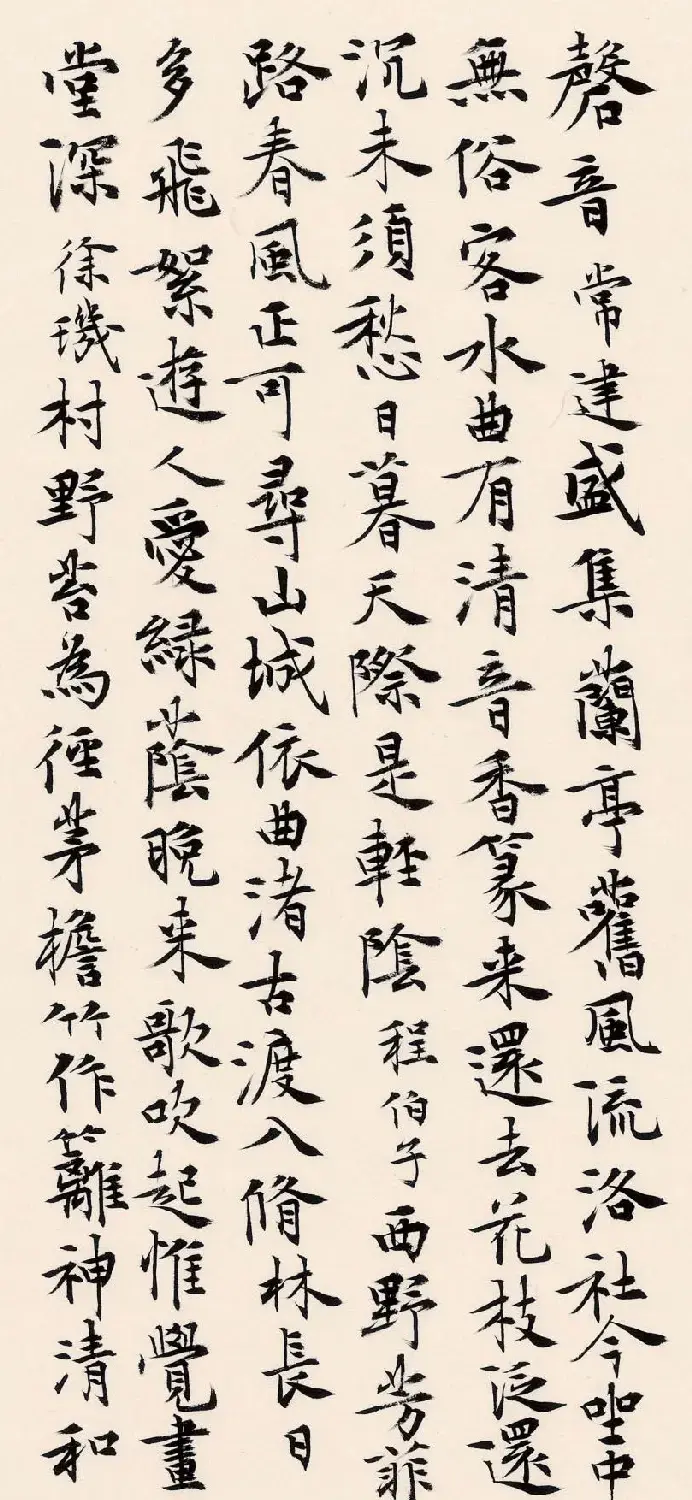 磬音常建盛集蘭亭舊風流洛社今坐中
無俗客水曲有清音香篆来還去花枝泛還
沉未須愁日暮天際是輕陰程伯子西野芳菲
路春風正可尋山城依曲渚古渡入脩林長日
多飛絮遊人愛緑蔭晚来歌吹起惟覺畫
堂深徐璣村野苔為徑茅檐竹作籬神清和